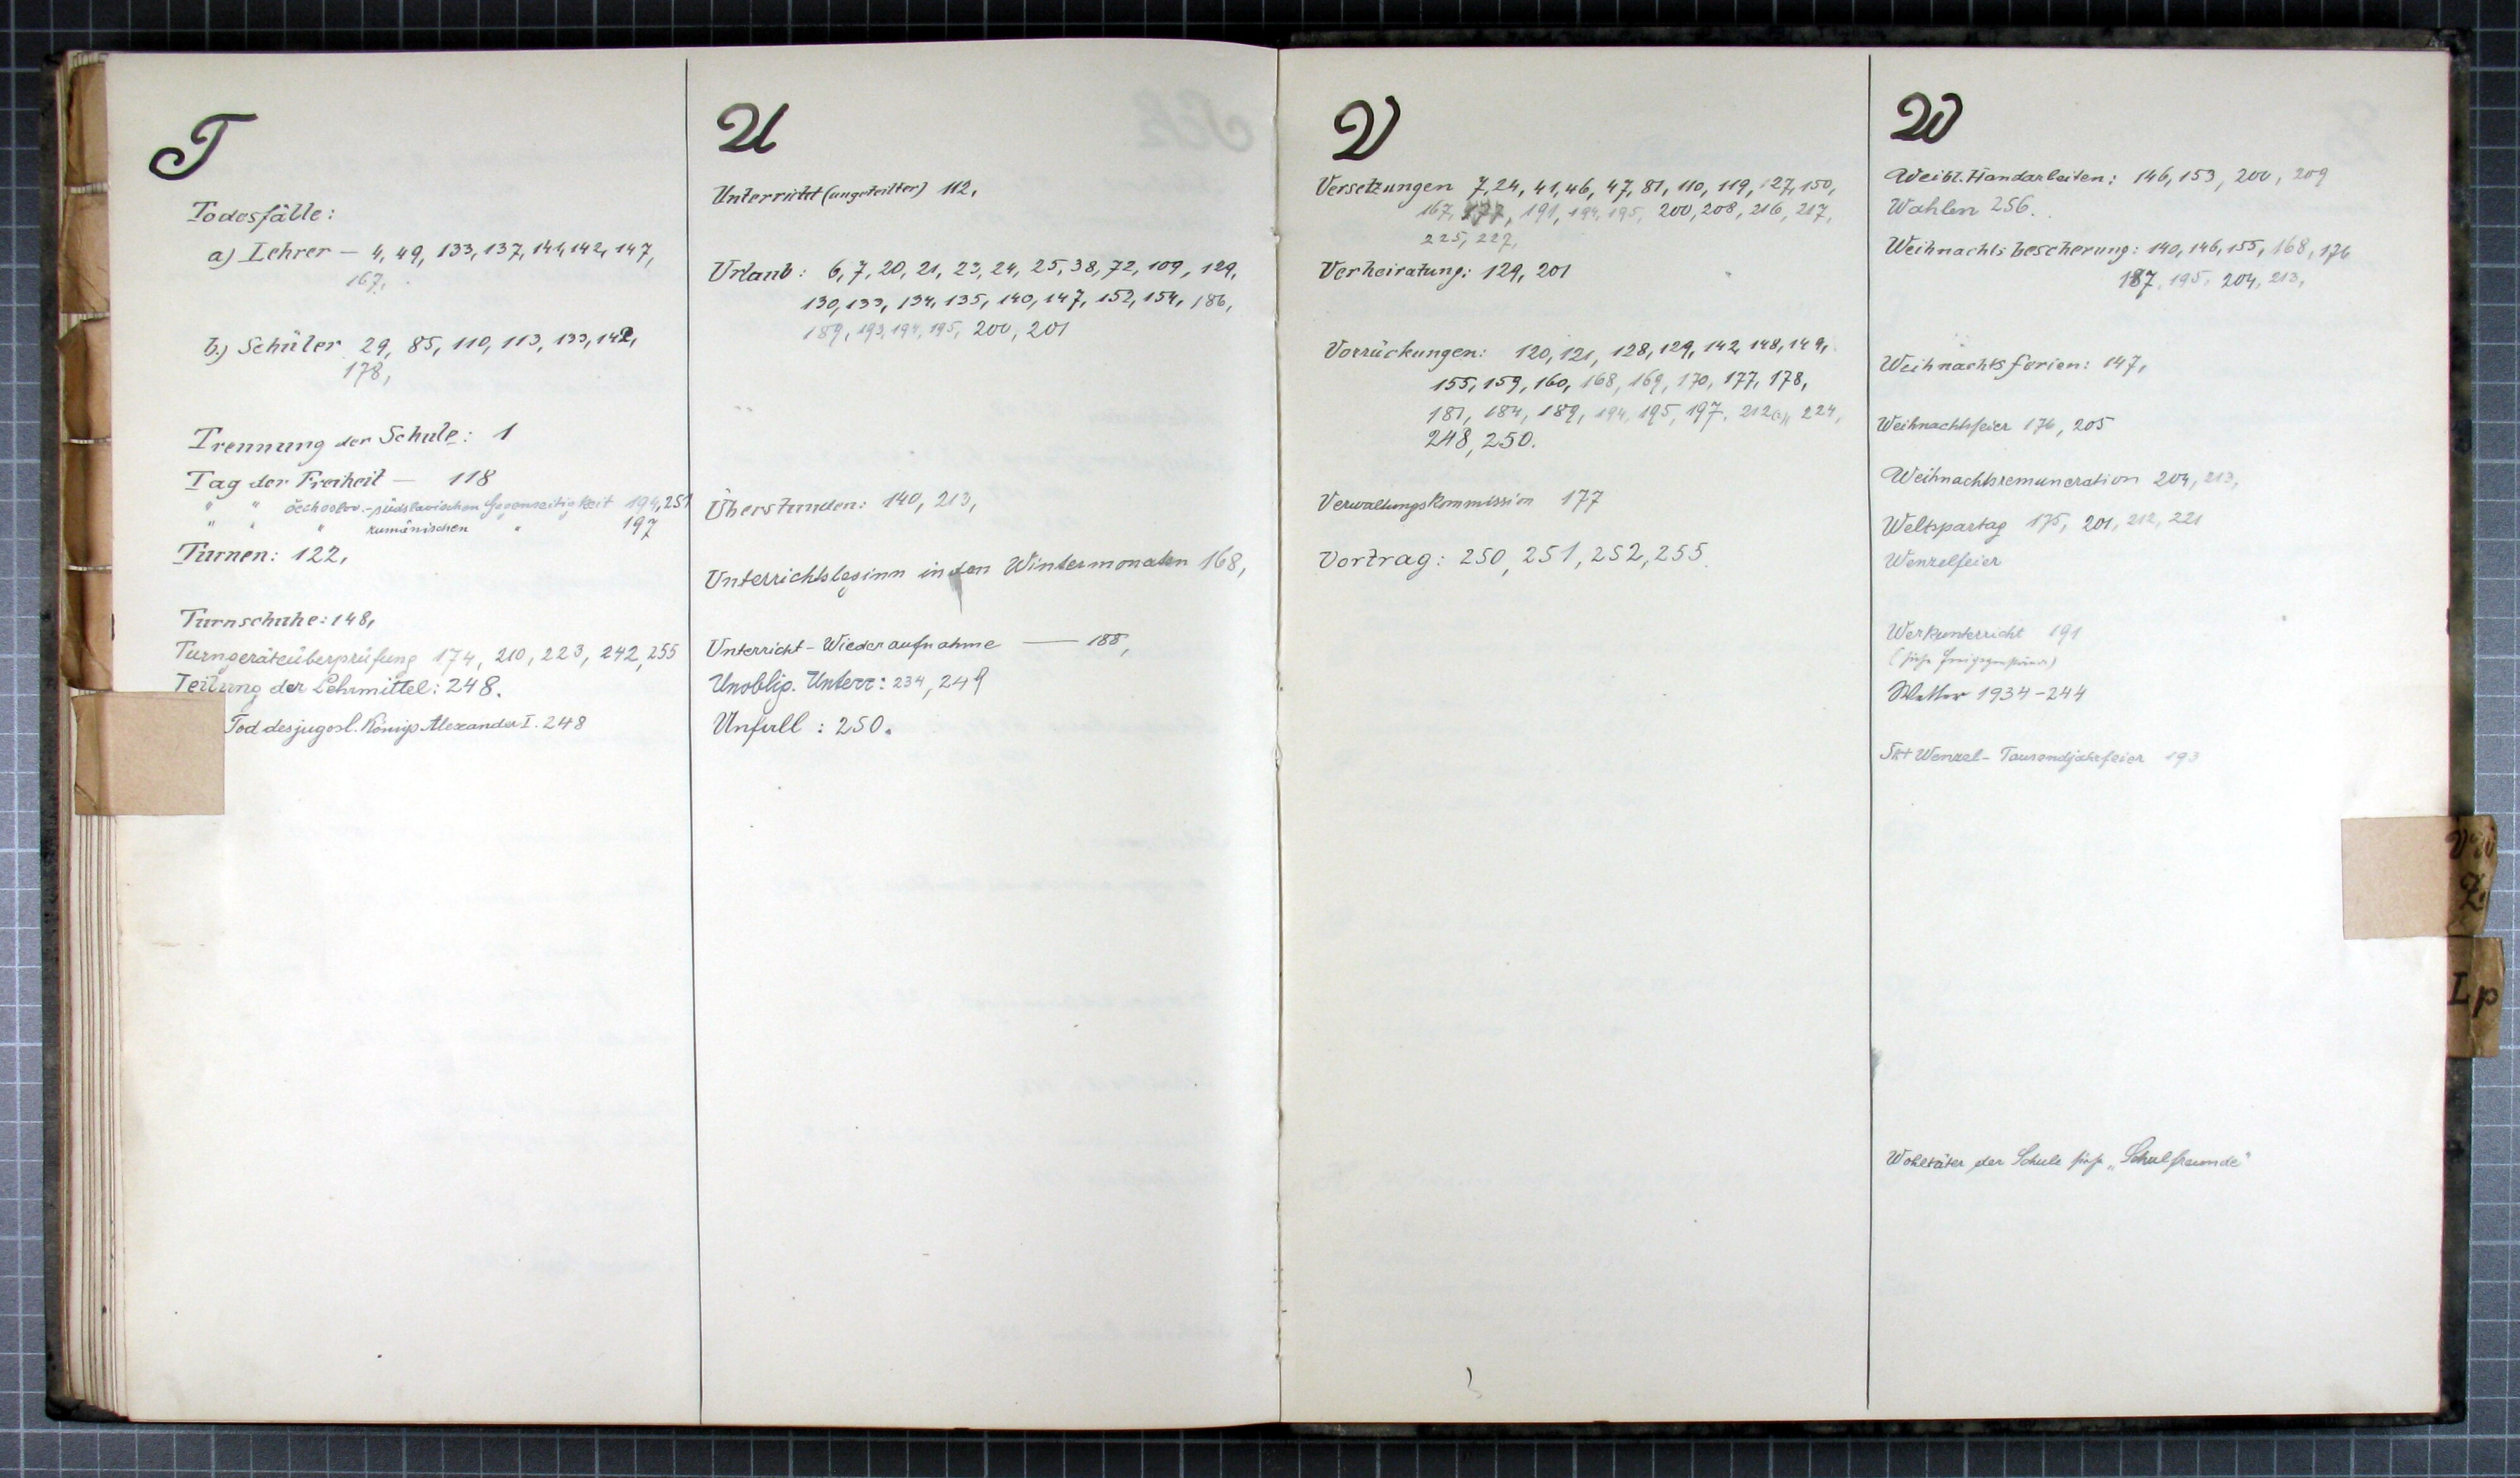 T
Todesfälle:
a) Lehrer — 4, 49, 133, 137, 141, 142, 147,
167,
b.) Schüler 29, 85, 110, 113, 133, 142,
178,
Trennung der Schule: 1
Tag der Freiheit — 118
" " čechoslov.-südslavischen Gegenseitigkeit 194, 251
" " " rumänischen " 197
Turnen: 122,
Turnschuhe: 148,
Turngeräteüberprüfung 174, 210, 223, 242, 255
Teilung der Lehrmittel: 248.
Tod des jugosl. Königs Alexander I. 248
U
Unterricht (ungeteilter) 112,
Urlaub: 6, 7, 20, 21, 23, 24, 25, 38, 72, 109, 129,
130, 133, 134, 135, 140, 147, 152, 154, 186,
189, 193, 194, 195, 200, 201
Überstunden: 140, 213,
Unterrichtsbeginn in den Wintermonaten 168,
Unterricht - Wiederaufnahme — 188,
Unoblig. Unterr: 234, 249
Unfall : 250.
V
Versetzungen 7, 24, 41, 46, 47, 81, 110, 119, 127, 150,
167, 177, 191, 194, 195, 200, 208, 216, 217,
225, 227,
Verheiratung: 129, 201
Vorrückungen: 120, 121, 128, 129, 142, 148, 149,
155, 159, 160, 168, 169, 170, 177, 178,
181, 184, 189, 194, 195, 197, 212, 224,
248, 250.
Verwaltungskommission 177
Vortrag: 250, 251, 252, 255.
W
Weibl. Handarbeiten: 146, 153, 200, 209
Wahlen 256.
Weihnachtsbescherung: 140, 146, 155, 168, 176
187, 195, 204, 213,
Weihnachtsferien: 147,
Weihnachtsfeier 176, 205
Weihnachtsremuneration 204, 213,
Weltspartag 175, 201, 212, 221
Wenzelfeier
Werkunterricht 191
(siehe Freigegenstände)
Wetter 1934 - 244
Skt Wenzel - Tausendjahrfeier 193
Wohltäter der Schule siehe „Schulfreunde"
V W
Z
Lp